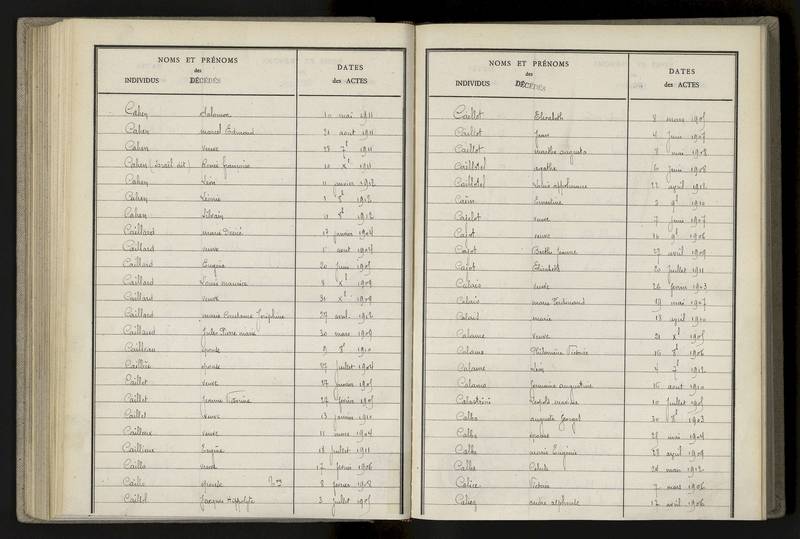 NOMS ET PRÉNOMS
des
INDIVIDUS DÉCÉDÉS
DATES
des ACTES
Cahen Salomon 10 mai 1911
Cahen Marcel Edmond 21 aout 1911
Cahen veuve 28 7e 1911
Cahen (Israël dit) René françois 10 Xe 1911
Cahen Léon 11 janvier 1912
Cahen Léonie 3 8e 1912
Cahen Silvain 11 8e 1912
Caillard marie Désiré 17 janvier 1904
Caillard veuve aout 1904
Caillard Eugène 20 Juin 1905
Caillard Louis maurice 8 Xe 1909
Caillard veuve 31 Xe 1909
Caillard marie Joséphine 27 avril 1912
Caillaud Jules Pierre marie 30 mars 1909
Cailleau épouse 9 8e 1910
épouse 27 juillet 1904
Caillet veuve 27 janvier 1905
Caillet Jeanne Victorine 27 février 1905
Caillet veuve 13 janvier 1910
Cailleux veuve 11 mars 1904
Cailleux Eugène 18 juillet 1911
Caillo veuve 17 février 1906
Caillo épouse 8 février 1908
Caillol Jacques Hippolyte 3 juillet 1905
NOMS ET PRÉNOMS
des
INDIVIDUS DÉCÉDÉS
DATES
des ACTES
Caillot Elisabeth 8 mars 1905
Caillot Jean 4 Juin 1907
Caillot marthe augusta 8 mai 1908
Caillotel agathe 6 juin 1908
Caillotel Louis 22 avril 1912
Caën Ernestine 3 9e 1910
veuve 7 juin 1907
Cajot veuve 16 9e 1906
Cajot Berthe Jeanne 27 avril 1909
Cajot Elisabeth 20 Juillet 1911
Calais veuve 26 février 1903
Calais marie Ferdinand 19 mai 1907
Calais marie 18 avril 1910
Calame veuve 21 Xe 1905
Calame Philomène Victoire 16 8e 1906
Calame Léon 4 7e 1912
Calame Germaine augustine 16 aout 1910
Léopold 10 Juillet 1905
Calba auguste Georges 30 8e 1903
Calba épouse 27 mai 1904
Calba marie Eugénie 28 avril 1909
Calba Céleste 24 mai 1912
Calice Victoire 7 mars 1906
andré alphonse 17 avril 1906